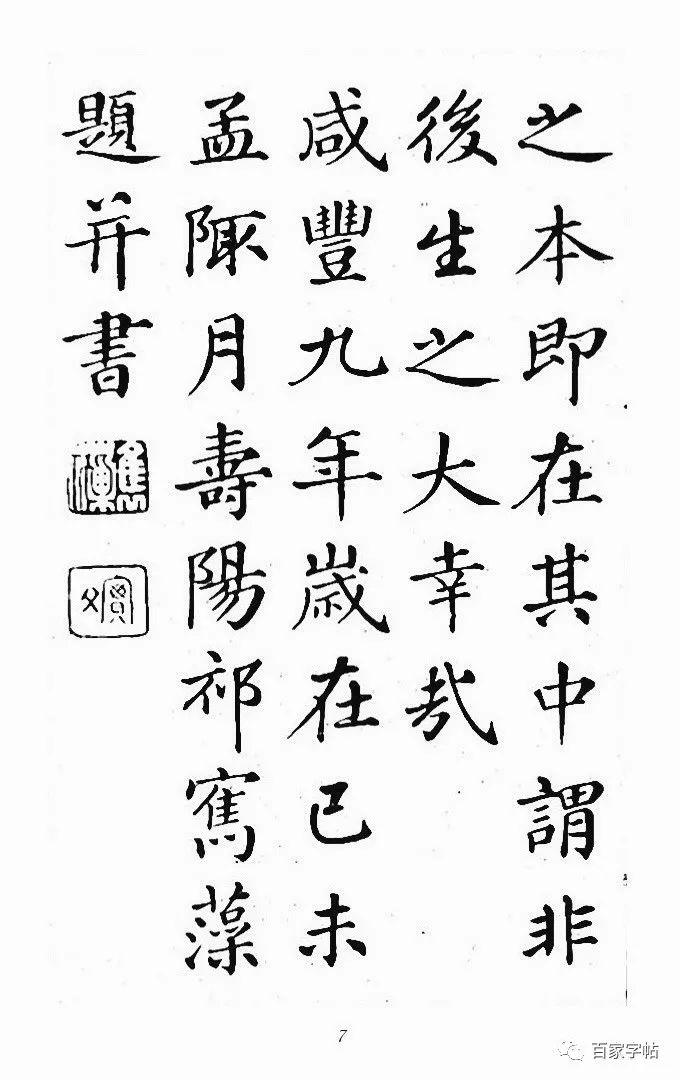 之本即在其中謂非
後生之大幸哉
咸豐九年歲在己未
孟陬月壽陽祁寯藻
題并書
7
百家字帖